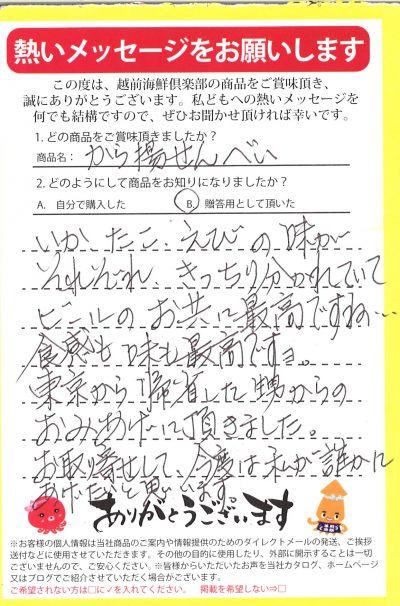 熱いメッセージをお願いします
この度は、越前海鮮倶楽部の商品をご賞味頂き、
誠にありがとうございます。私どもへの熱いメッセージを
何でも結構ですので、ぜひお聞かせ頂ければ幸いです。
1. どの商品をご賞味頂きましたか？
商品名： から揚せんべい
2. どのようにして商品をお知りになりましたか？
A. 自分で購入した B. 贈答用として頂いた
いか、たこ、えびの味が
それぞれ、きっちり分かれていて
ビールのお共に最高ですね…
食感も味も最高ですヨ。
東京から帰省した甥からの
おみあげに頂きました。
お取り寄せして、今度は私が誰かに
あげたいと思います。
ありがとうございます
※お客様の個人情報は当社商品のご案内や情報提供のためのダイレクトメールの発送、ご挨拶
送付などに使用させていただきます。その他の目的に使用したり、外部に開示することは一切
ございませんので、ご安心ください。※皆様からいただいたお声を当社カタログ、ホームページ
又はブログでご紹介させていただく場合がございます。
ご希望されない方は□に✓を入れてください。 掲載を希望しない⇒□